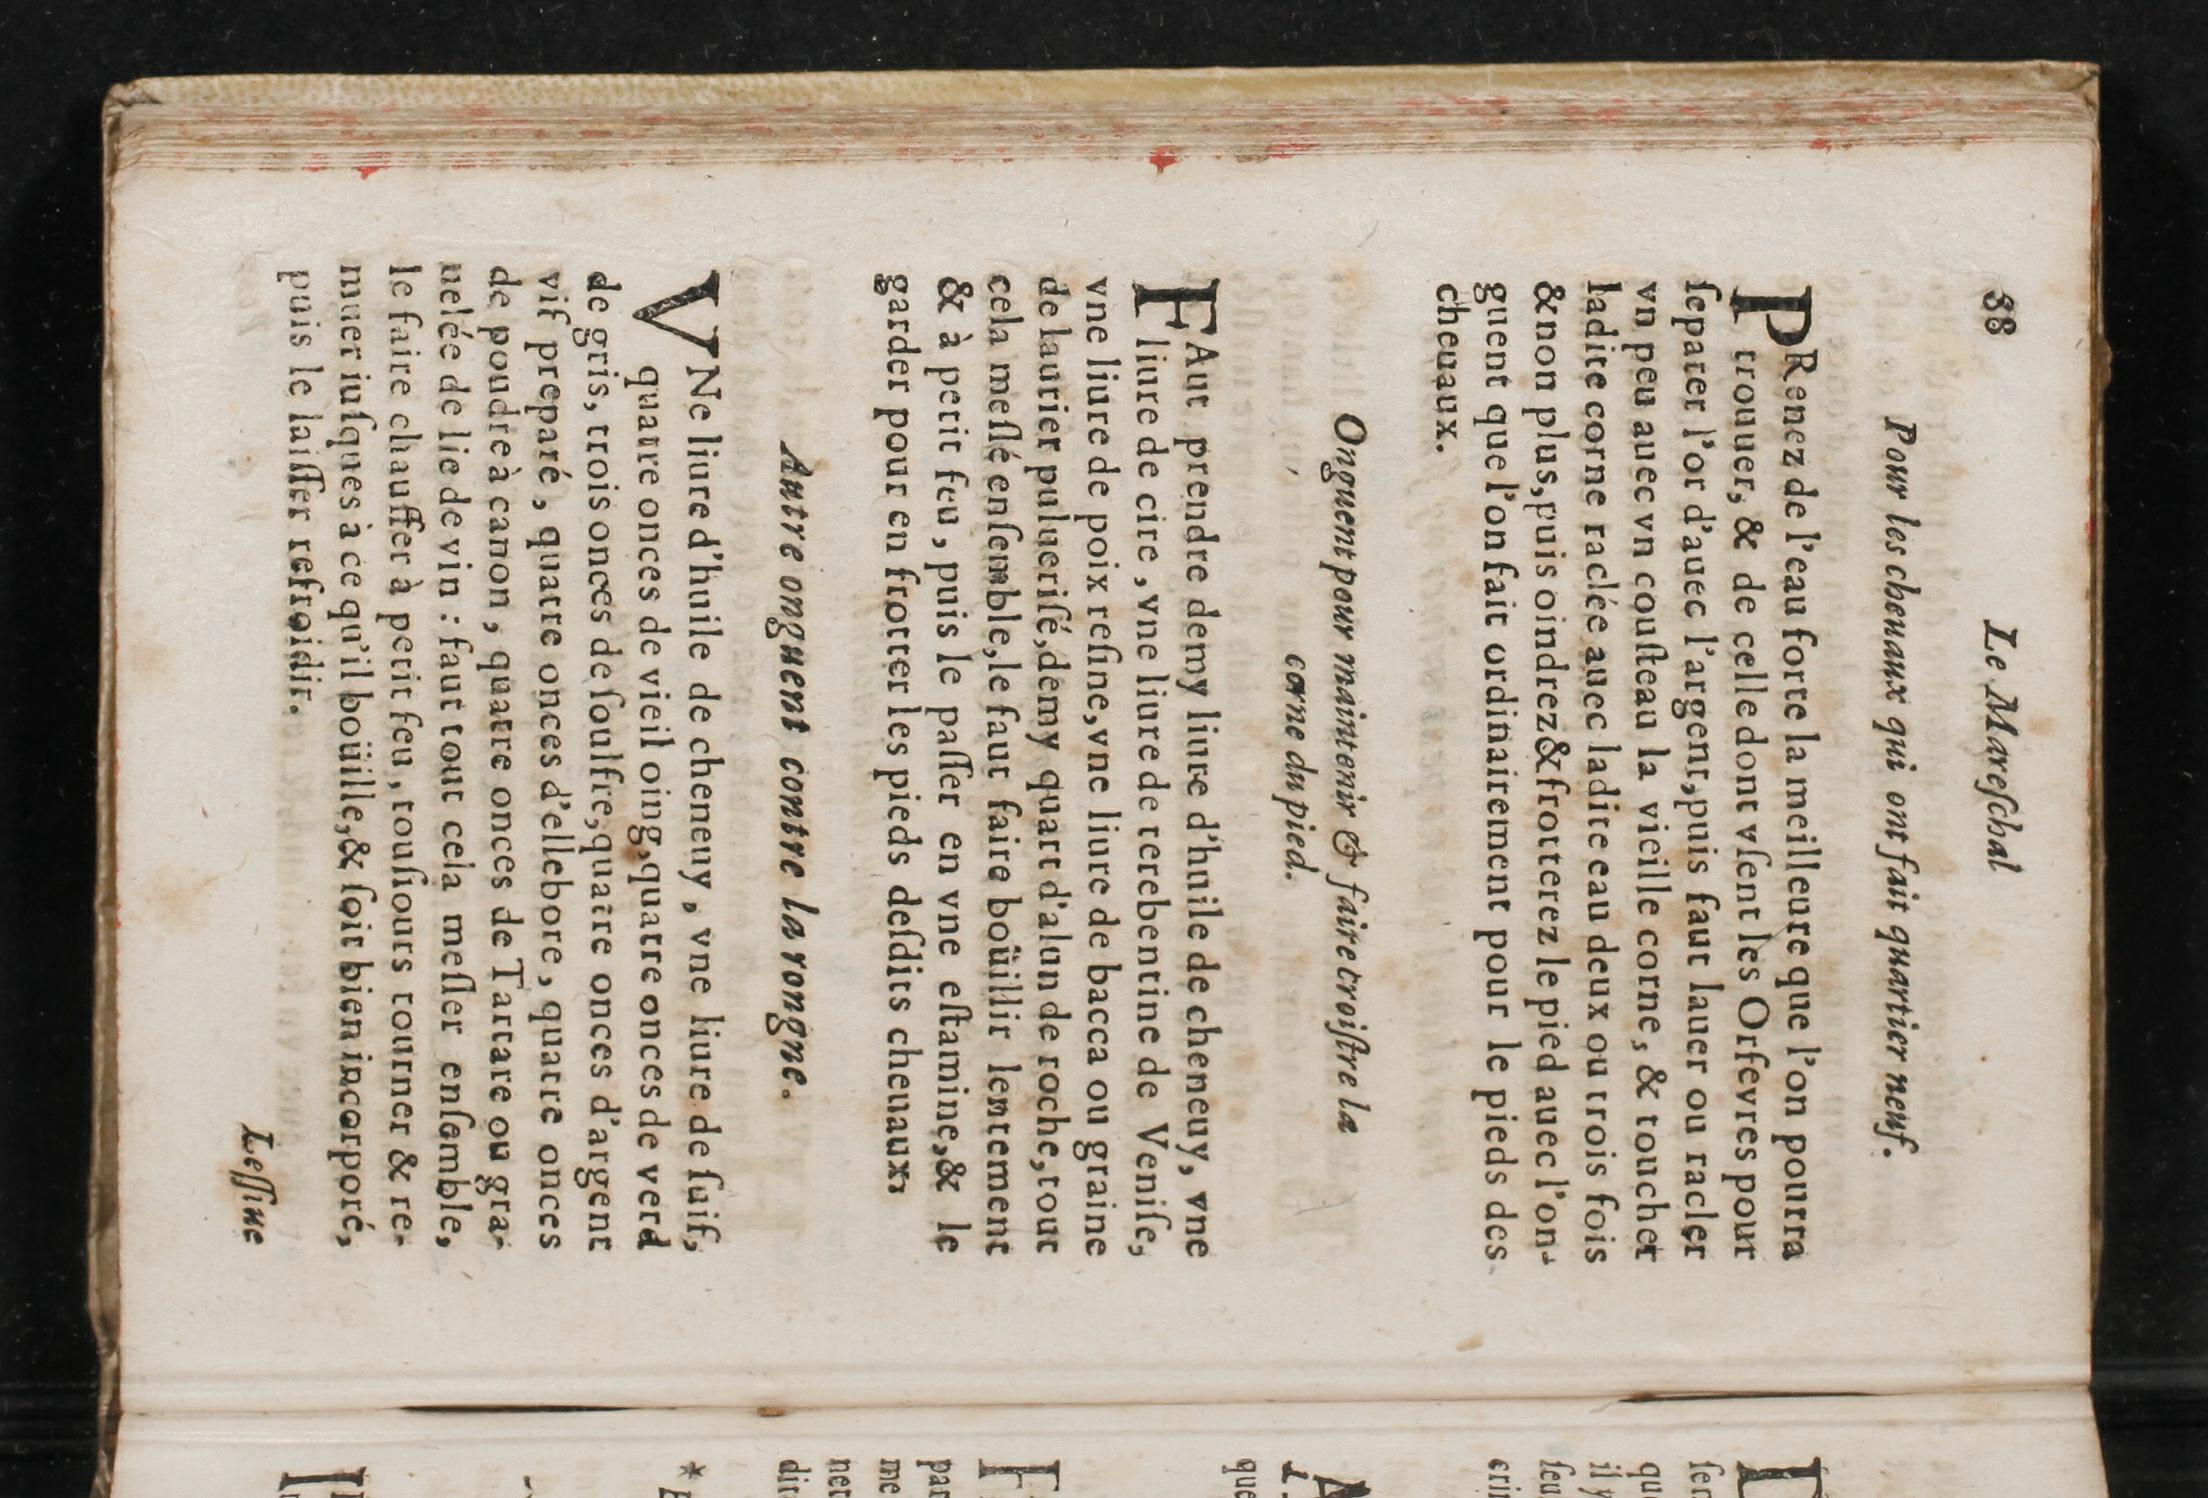 38 Le Mareſchal
Pour les cheuaux qui ont fait quartier neuf.
PRenez de l'eau forte la meilleure que l'on pourra
trouuer, & de celle dont vſent les Orfevres pour
ſeparer l'or d'auec l'argent, puis faut lauer ou racler
vn peu auec vn couſteau la vieille corne, & toucher
ladite corne raclée auec ladite eau deux ou trois fois
& non plus, puis oindrez & frotterez le pied auec l'on-
guent que l'on fait ordinairement pour le pieds des
cheuaux.
Onguent pour maintenir & faire croiſtre la
corne du pied.
FAut prendre demy liure d'huile de cheneuy, vne
liure de cire, vne liure de terebentine de Veniſe,
vne liure de poix reſine, vne liure de bacca ou graine
de laurier pulueriſé, demy quart d'alun de roche, tout
cela meſlé enſemble, le faut faire boüillir lentement
& à petit feu, puis le paſſer en vne eſtamine, & le
garder pour en frotter les pieds deſdits cheuaux.
Autre onguent contre la rongne.
VNe liure d'huile de cheneuy, vne liure de ſuif,
quatre onces de vieil oing, quatre onces de verd
de gris, trois onces de ſoulfre, quatre onces d'argent
vif preparé, quatre onces d'ellebore, quatre onces
de poudre à canon, quatre onces de Tartare ou gra-
uelée de lie de vin : faut tout cela meſler enſemble,
le faire chauffer à petit feu, touſiours tourner & re-
muer iuſques à ce qu'il boüille, & ſoit bien incorporé,
puis le laiſſer refroidir.
Leſſiue
que
par
me
net